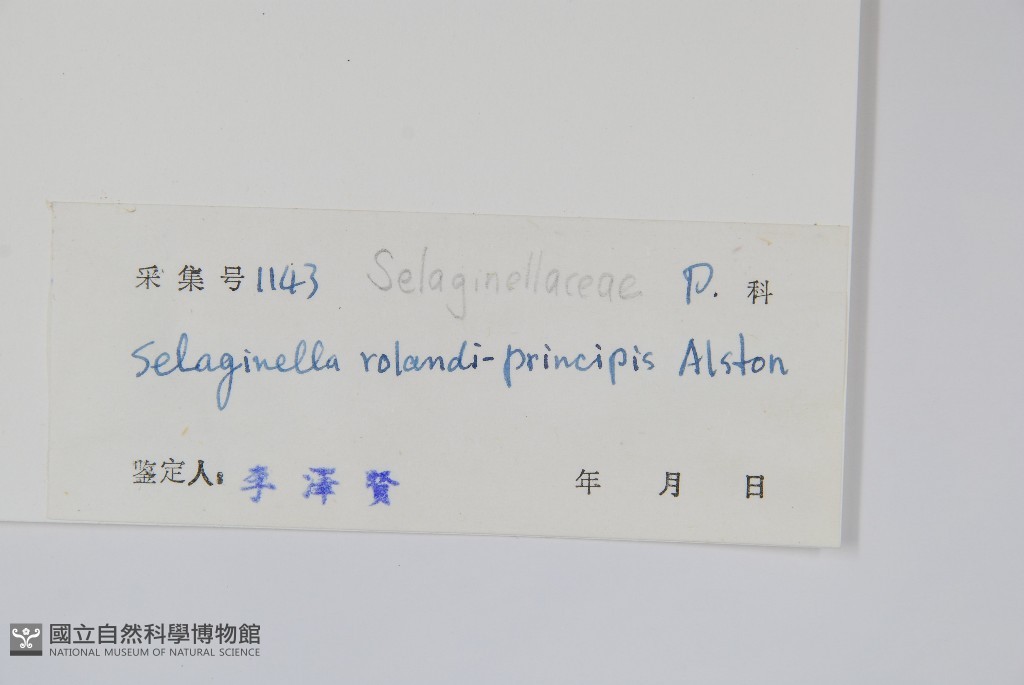 采集号 1143 Selaginellaceae P. 科
Selaginella rolandi-principis Alston
鉴定人: 李泽贤 年 月 日
國立自然科學博物館
NATIONAL MUSEUM OF NATURAL SCIENCE